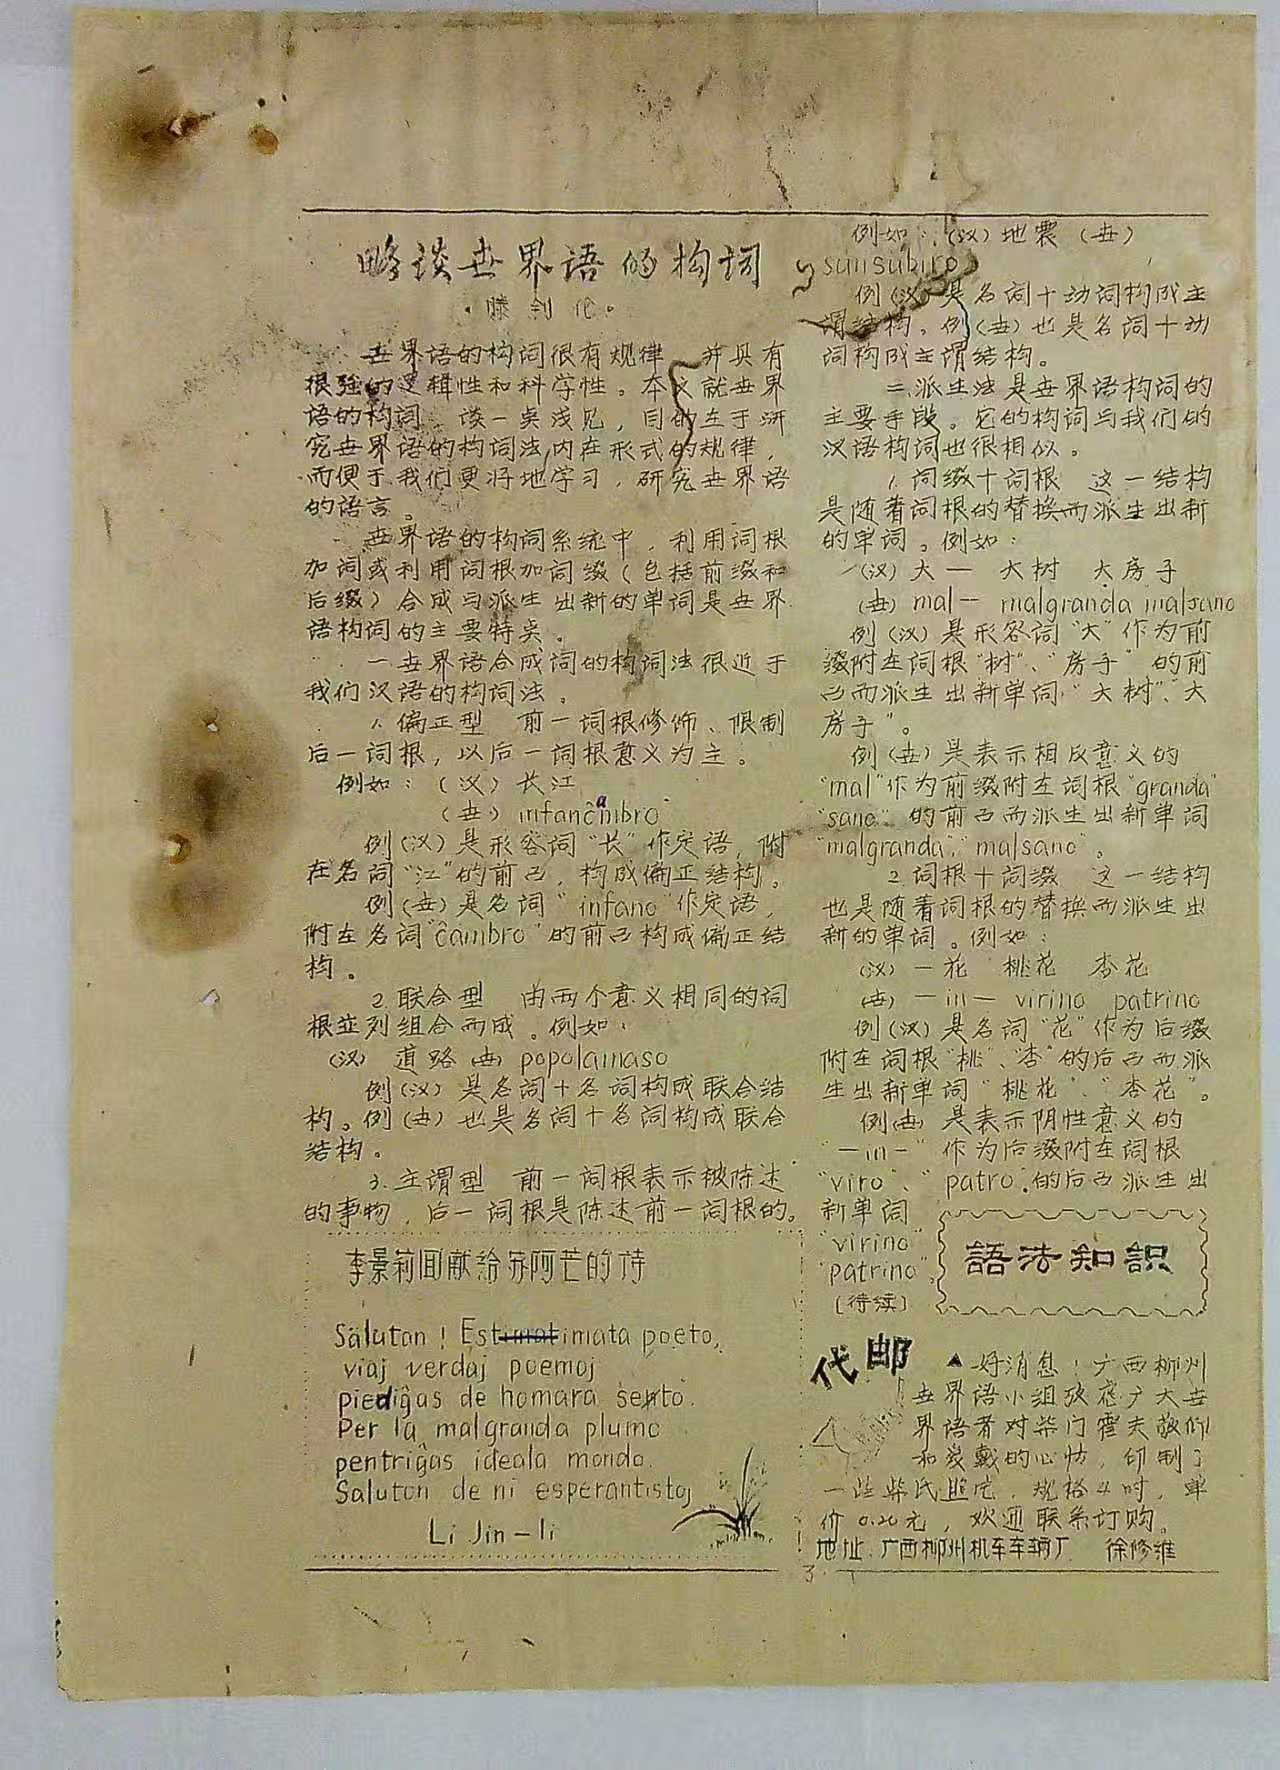 略谈世界语的构词
·滕剑伦·
世界语的构词很有规律 并具有
很强的逻辑性和科学性。本文就世界
语的构词 谈一点浅见，目的在于研
究世界语的构词法内在形式的规律，
而便于我们更好地学习，研究世界语
的语言。
世界语的构词系统中，利用词根
加词或利用词根加词缀（包括前缀和
后缀）合成与派生出新的单词是世界
语构词的主要特点。
一 世界语合成词的构词法很近于
我们汉语的构词法。
1. 偏正型 前一词根修饰、限制
后一词根，以后一词根意义为主。
例如：（汉）长江
（世）infanĉambro
例（汉）是形容词“长”作定语，附
在名词“江”的前面，构成偏正结构。
例（世）是名词“infano”作定语，
附在名词“ĉambro”的前面构成偏正结
构。
2. 联合型 由两个意义相同的词
根並列组合而成。例如：
（汉）道路（世）popolamaso
例（汉）是名词十名词构成联合结
构。例（世）也是名词十名词构成联合
结构。
3. 主谓型 前一词根表示被陈述
的事物，后一词根是陈述前一词根的。
例如：（汉）地震（世）
sunsubiro
例（汉）是名词十动词构成主
谓结构。例（世）也是名词十动
词构成主谓结构。
二.派生法是世界语构词的
主要手段。它的构词与我们的
汉语构词也很相似。
1. 词缀十词根 这一结构
是随着词根的替换而派生出新
的单词。例如：
（汉）大一 大树 大房子
（世）mal— malgranda malsano
例（汉）是形容词“大”作为前
缀附在词根“树”、“房子”的前
面而派生出新单词“大树”、“大
房子”。
例（世）是表示相反意义的
“mal”作为前缀附在词根“granda”
“sano”的前面而派生出新单词
“malgranda”，“malsano”。
2. 词根十词缀 这一结构
也是随着词根的替换而派生出
新的单词。例如：
（汉）一花 桃花 杏花
（世）—in— virino patrino
例（汉）是名词“花”作为后缀
附在词根“桃”、“杏”的后面而派
生出新单词“桃花”、“杏花”。
例（世）是表示阴性意义的
“—in—”作为后缀附在词根
“viro”、“patro”.的后面派生出
新单词
“virino”
“patrino”。
[待续]
語法知識
李景莉回献给苏阿芒的诗
Saluton！Estimata poeto,
viaj verdaj poemoj
piediĝas de homara sento.
Per la malgranda plumo
pentriĝas ideala mondo.
Saluton de ni esperantistoj
Li Jin－li
代邮
▲好消息！广西柳州
世界语小组 应广大世
界语者对柴门霍夫敬仰
和爱戴的心情，印制了
一些柴氏照片，规格4吋，单
价0.20元，欢迎联系订购。
地址：广西柳州机车车辆厂 徐修维
3